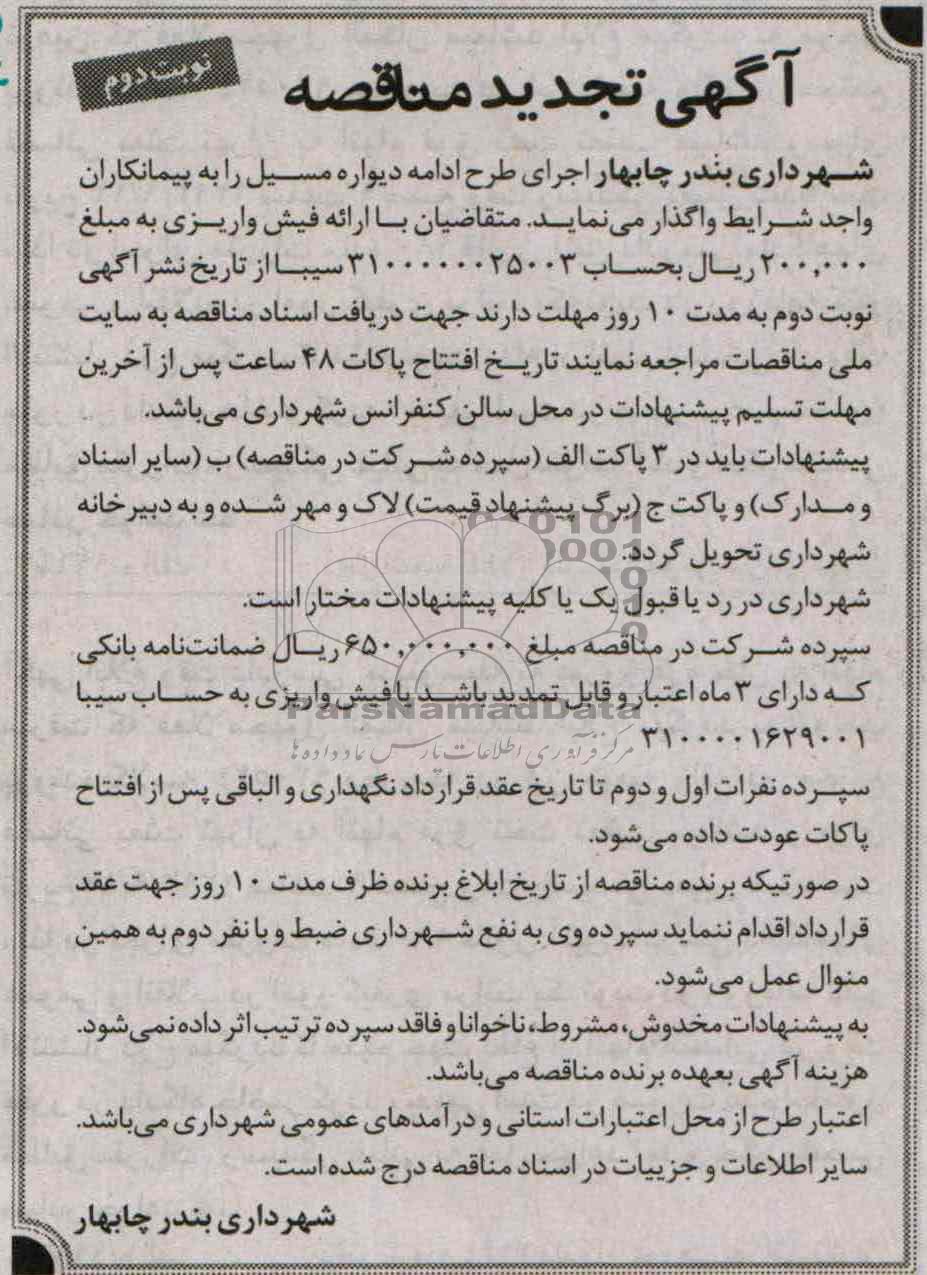 آگهی تجدید مناقصه
نوبت دوم
شهرداری بندر چابهار اجرای طرح ادامه دیواره مسیل را به پیمانکاران
واجد شرایط واگذار می‌نماید. متقاضیان با ارائه فیش واریزی به مبلغ
۲۰۰,۰۰۰ ریال بحساب ۳۱۰۰۰۰۰۰۲۵۰۰۳ سیبا از تاریخ نشر آگهی
نوبت دوم به مدت ۱۰ روز مهلت دارند جهت دریافت اسناد مناقصه به سایت
ملی مناقصات مراجعه نمایند تاریخ افتتاح پاکات ۴۸ ساعت پس از آخرین
مهلت تسلیم پیشنهادات در محل سالن کنفرانس شهرداری می‌باشد.
پیشنهادات باید در ۳ پاکت الف (سپرده شرکت در مناقصه) ب (سایر اسناد
و مدارک) و پاکت ج (برگ پیشنهاد قیمت) لاک و مهر شده و به دبیرخانه
شهرداری تحویل گردد.
شهرداری در رد یا قبول یک یا کلیه پیشنهادات مختار است.
سپرده شرکت در مناقصه مبلغ ۶۵۰,۰۰۰,۰۰۰ ریال ضمانت‌نامه بانکی
که دارای ۳ ماه اعتبار و قابل تمدید باشد یا فیش واریزی به حساب سیبا
ParsNamadData
۳۱۰۰۰۰۱۶۲۹۰۰۱
مرکز فرآوری اطلاعات پارس نماد داده ها
سپرده نفرات اول و دوم تا تاریخ عقد قرارداد نگهداری و الباقی پس از افتتاح
پاکات عودت داده می‌شود.
در صورتیکه برنده مناقصه از تاریخ ابلاغ برنده ظرف مدت ۱۰ روز جهت عقد
قرارداد اقدام ننماید سپرده وی به نفع شهرداری ضبط و با نفر دوم به همین
منوال عمل می‌شود.
به پیشنهادات مخدوش، مشروط، ناخوانا و فاقد سپرده ترتیب اثر داده نمی‌شود.
هزینه آگهی بعهده برنده مناقصه می‌باشد.
اعتبار طرح از محل اعتبارات استانی و درآمدهای عمومی شهرداری می‌باشد.
سایر اطلاعات و جزییات در اسناد مناقصه درج شده است.
شهرداری بندر چابهار